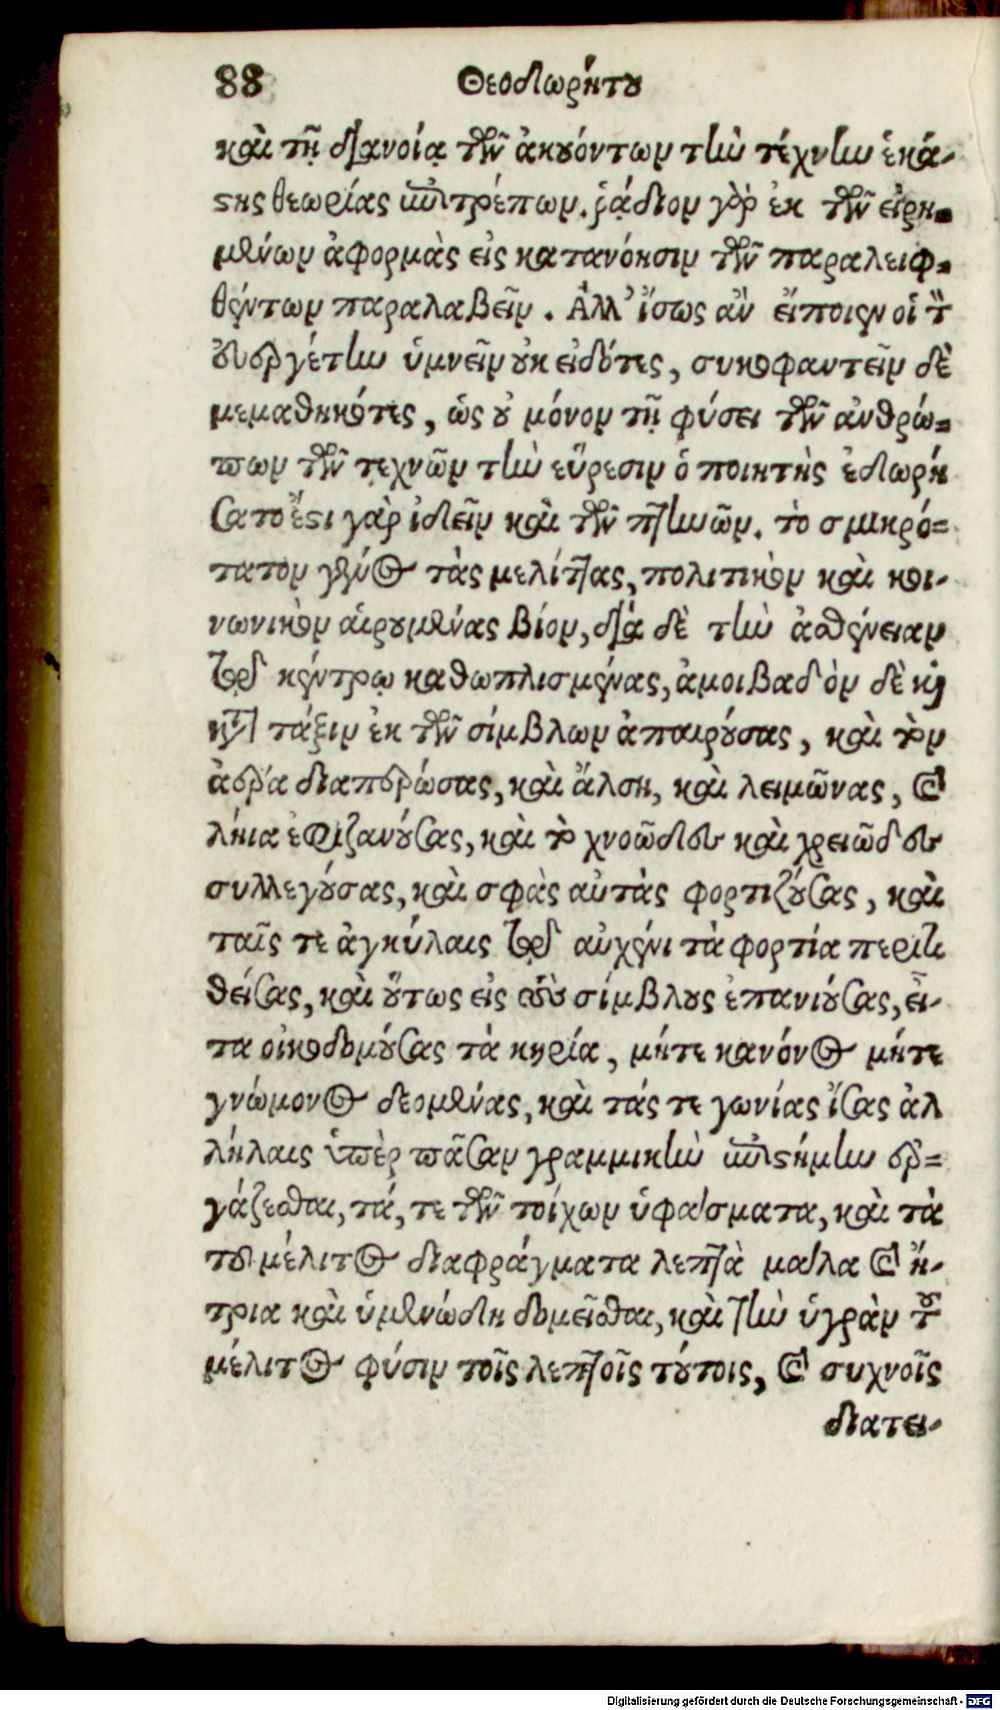 88 Θεοδωρήτου
καὶ τῇ διανοίᾳ τῶν ἀκουόντων τὴν τέχνην ἑκά-
στης θεωρίας ἐπιτρέπων. ῥᾴδιον γὰρ ἐκ τῶν εἰρη-
μένων ἀφορμὰς εἰς κατανόησιν τῶν παραλειφ-
θέντων παραλαβεῖν. Ἀλλ' ἴσως ἂν εἴποιεν οἱ τὸν
εὐεργέτην ὑμνεῖν οὐκ εἰδότες, συκοφαντεῖν δὲ
μεμαθηκότες, ὡς οὐ μόνον τῇ φύσει τῶν ἀνθρώ-
πων τῶν τεχνῶν τὴν εὕρεσιν ὁ ποιητὴς ἐδωρή
σατο ἔστι γὰρ ἰδεῖν καὶ τῶν πτηνῶν. τὸ σμικρό-
τατον γένος τὰς μελίττας, πολιτικὸν καὶ κοι-
νωνικὸν αἱρουμένας βίον, διὰ δὲ τὴν ἀσθένειαν
τῷ κέντρῳ καθωπλισμένας, ἀμοιβαδὸν δὲ καὶ
κατὰ τάξιν ἐκ τῶν σίμβλων ἀπαιρούσας, καὶ τὸν
ἀέρα διαπερώσας, καὶ ἄλση, καὶ λειμῶνας, καὶ
λήια ἐφιζανούσας, καὶ τὸ χνοῶδες καὶ χρειῶδες
συλλεγούσας, καὶ σφὰς αὐτὰς φορτιζούσας, καὶ
ταῖς τε ἀγκύλαις τῷ αὐχένι τὰ φορτία περιτι
θείσας, καὶ οὕτως εἰς τοὺς σίμβλους ἐπανιούσας, εἶ-
τα οἰκοδομούσας τὰ κηρία, μήτε κανόνος μήτε
γνώμονος δεομένας, καὶ τάς τε γωνίας ἴσας ἀλ
λήλαις ὑπὲρ πᾶσαν γραμμικὴν ἐπιστήμην ἐρ-
γάζεσθαι, τά, τε τῶν τοίχων ὑφάσματα, καὶ τὰ
τοῦ μέλιτος διαφράγματα λεπτὰ μάλα καὶ ἤ-
τρια καὶ ὑμενώδη δομεῖσθαι, καὶ τὴν ὑγρὰν τοῦ
μέλιτος φύσιν τοῖς λεπτοῖς τούτοις, καὶ συχνοῖς
διατει-
Digitalisierung gefördert durch die Deutsche Forschungsgemeinschaft - DFG